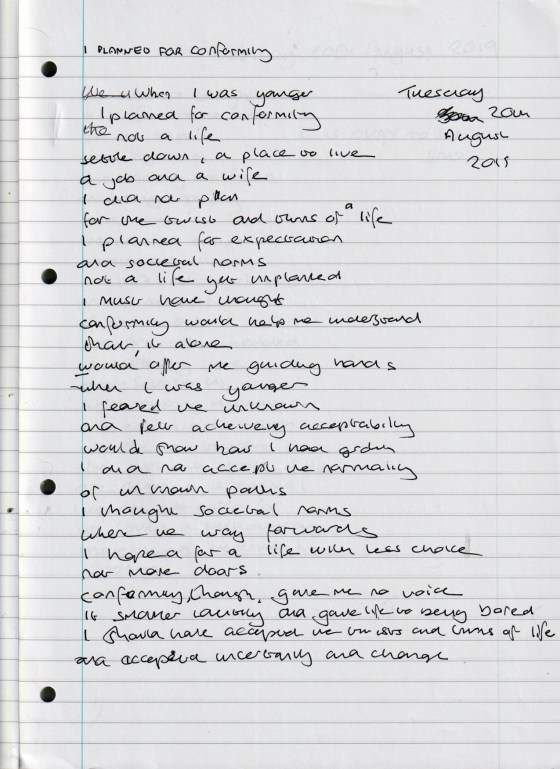 I PLANNED FOR CONFORMITY
When I was younger
Tuesday
I planned for conformity
20th
not a life
August
settle down, a place to live
2019
a job and a wife
I did not plan
for the twists and turns of a life
I planned for expectation
and societal norms
not a life yet unplanned
I must have thought
conformity would help me understand
that, it alone
would offer me guiding hands
when I was younger
I feared the unknown
and felt achieving acceptability
would show how I had grown
I did not accept the normality
of unknown paths
I thought societal norms
where the way forwards
I hoped for a life with less choice
not more doors
conformity, though, gave me no voice
it smarter and gave life to being bored
I should have accepted the twists and turns of life
and accepted uncertainty and change